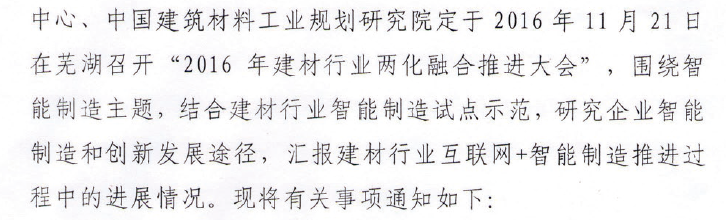 中心、中国建筑材料工业规划研究院定于 2016 年 11 月 21 日
在芜湖召开“2016 年建材行业两化融合推进大会”，围绕智
能制造主题，结合建材行业智能制造试点示范，研究企业智能
制造和创新发展途径，汇报建材行业互联网+智能制造推进过
程中的进展情况。现将有关事项通知如下：